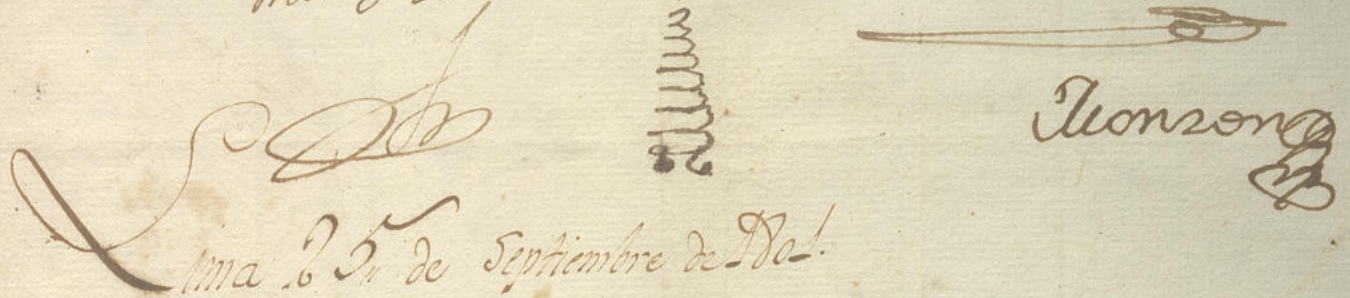 Monzon
Lima 25 de Septiembre de 1801.